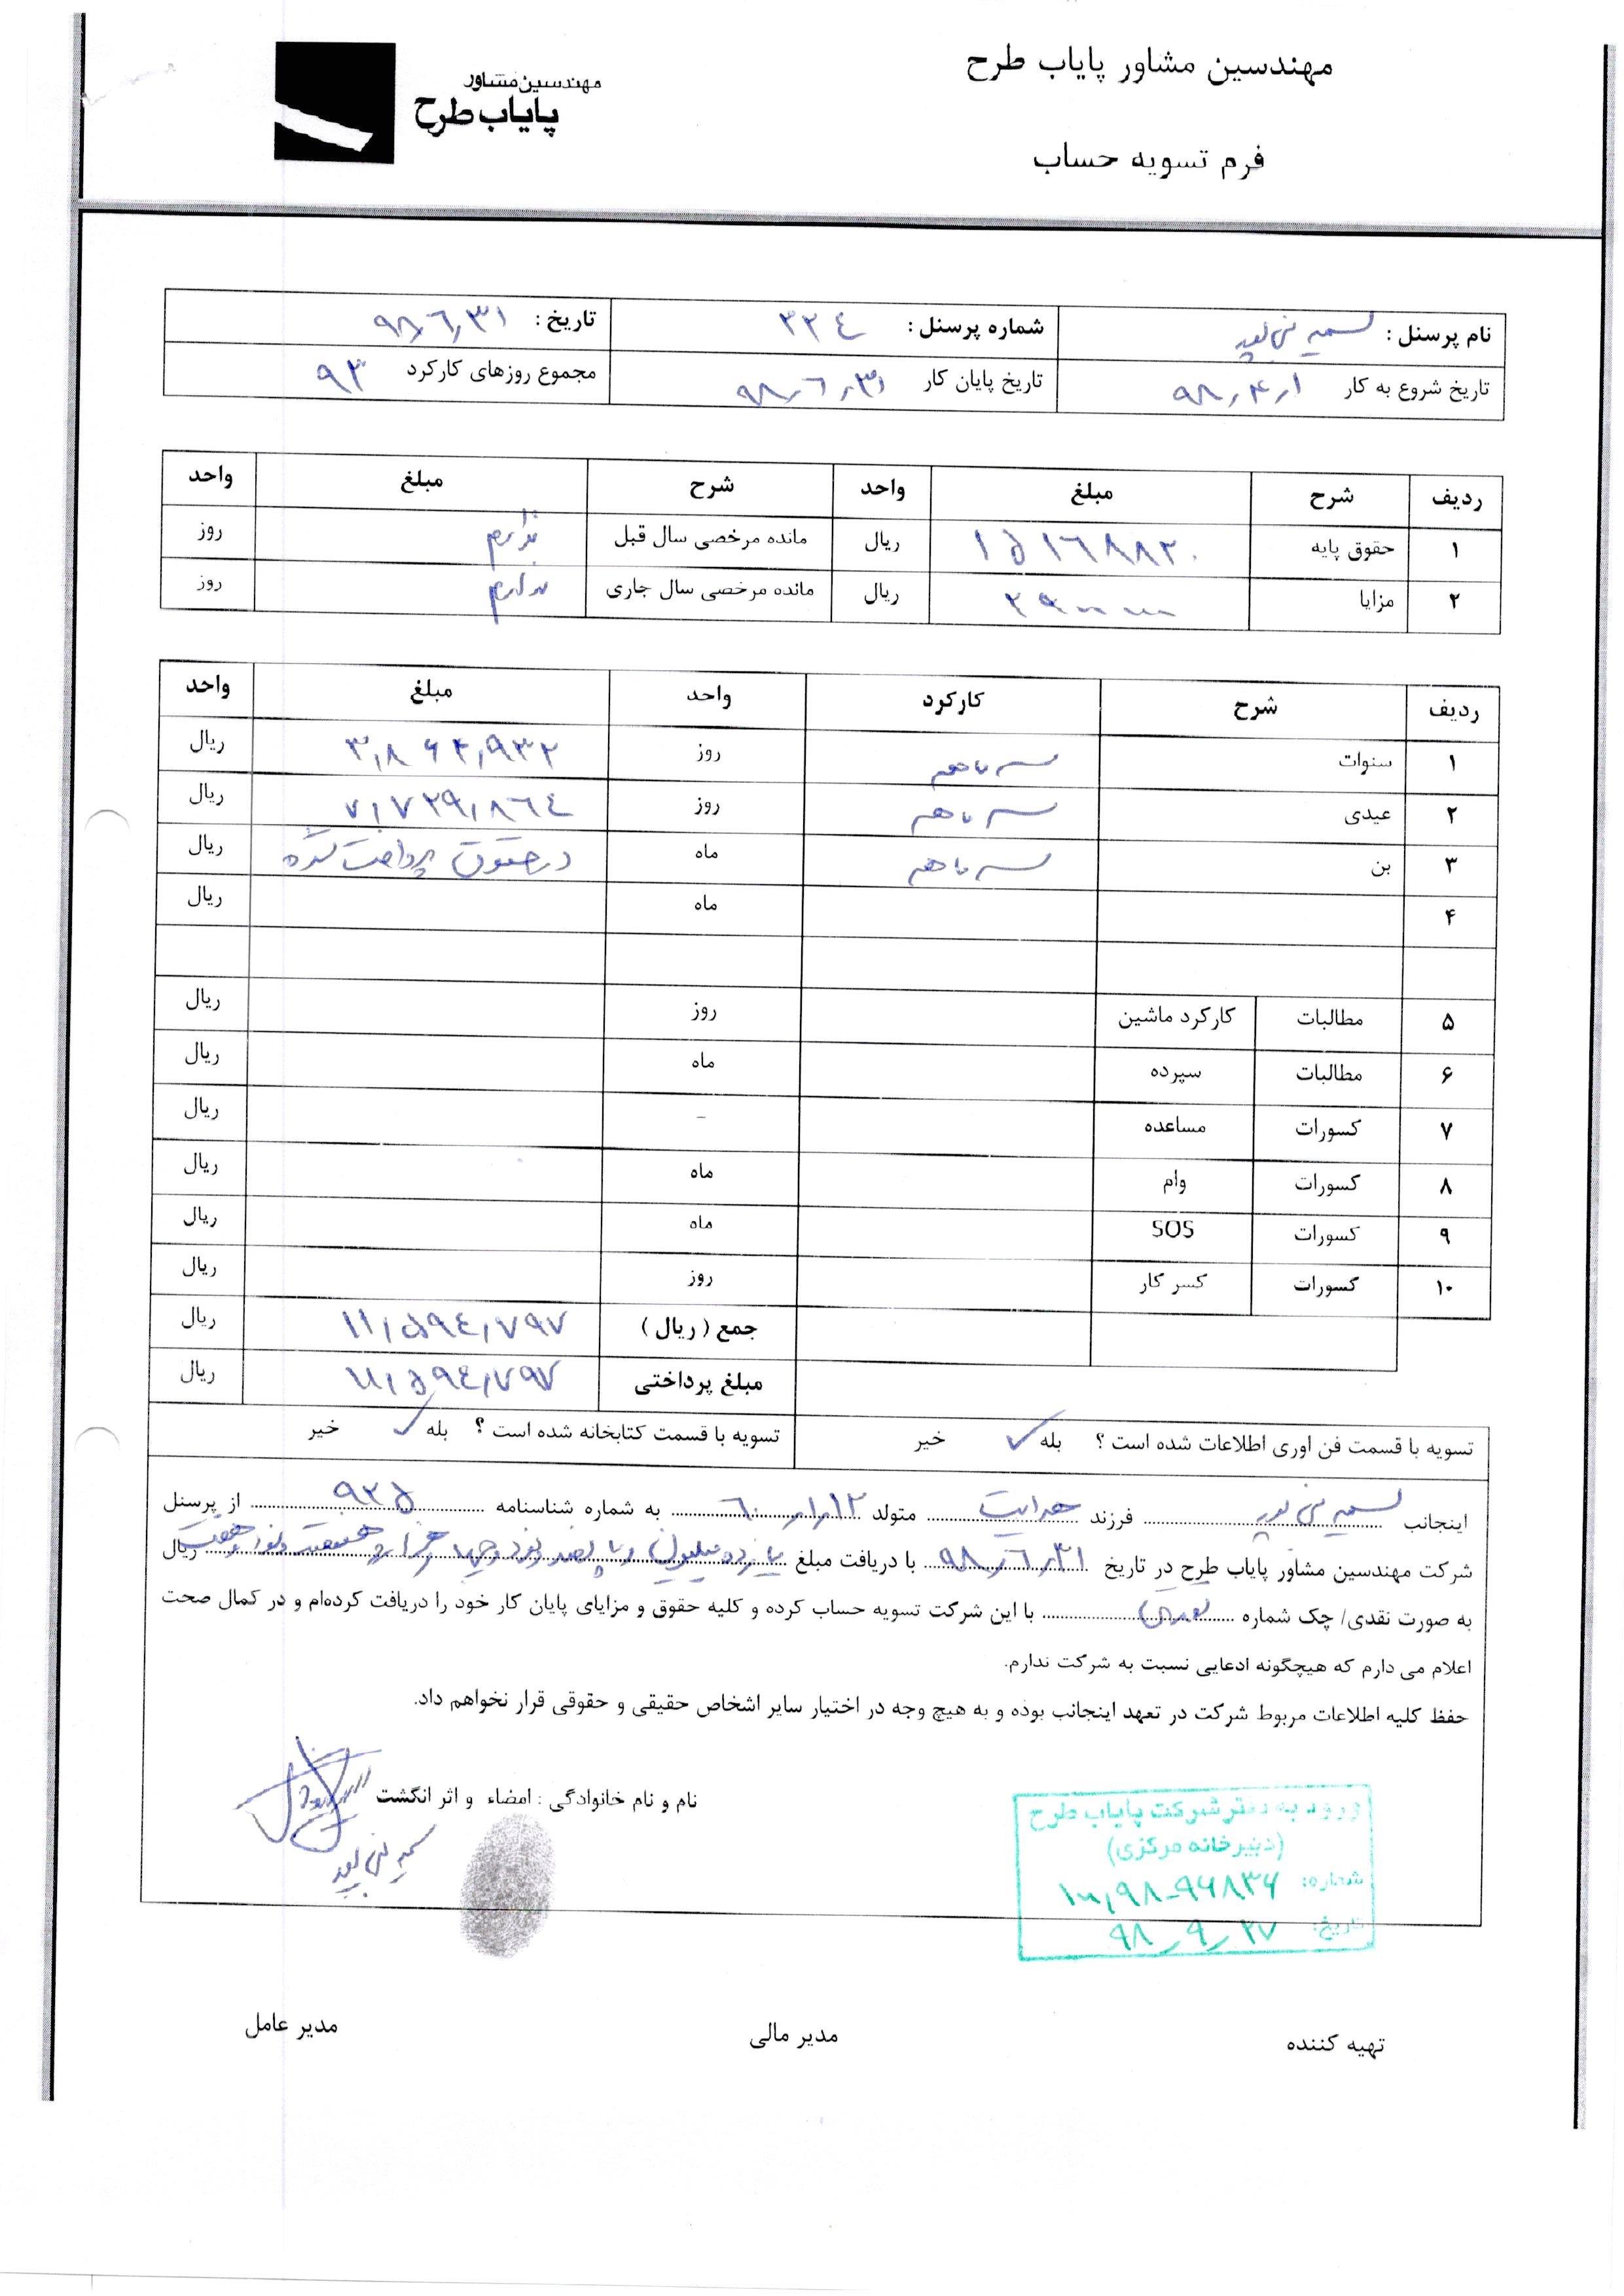 مهندسین مشاور پایاب طرح
مهندسین مشاور
پایاب طرح
فرم تسویه حساب
نام پرسنل : سمیه نبی پور شماره پرسنل : ۲۲٤ تاریخ : ۹۸,٦,۳۱
تاریخ شروع به کار ۹۸,۴,۱ تاریخ پایان کار ۹۸,٦,۳۱ مجموع روزهای کارکرد ۹۳
ردیف شرح مبلغ واحد شرح مبلغ واحد
۱ حقوق پایه ۱۵۱٦۸۸۲۰ ریال مانده مرخصی سال قبل ندارم روز
۲ مزایا ۲۹۰۰۰۰۰ ریال مانده مرخصی سال جاری ندارم روز
ردیف شرح کارکرد واحد مبلغ واحد
۱ سنوات سه ماهه روز ۳,۸۶۴,۹۳۲ ریال
۲ عیدی سه ماهه روز ۷,۷۲۹,۸٦٤ ریال
۳ بن سه ماهه ماه در حقوق پرداخت شده ریال
۴ ماه ریال
۵ مطالبات کارکرد ماشین روز ریال
۶ مطالبات سپرده ماه ریال
۷ کسورات مساعده - ریال
۸ کسورات وام ماه ریال
۹ کسورات SOS ماه ریال
۱۰ کسورات کسر کار روز ریال
جمع ( ریال ) ۱۱,۵۹٤,۷۹۷ ریال
مبلغ پرداختی ۱۱,۵۹٤,۷۹۷ ریال
تسویه با قسمت فن اوری اطلاعات شده است ؟ بله ✓ خیر تسویه با قسمت کتابخانه شده است ؟ بله ✓ خیر
اینجانب سمیه نبی پور فرزند هدایت متولد ٦۰,۱,۱۲ به شماره شناسنامه ۹۲۵ از پرسنل
شرکت مهندسین مشاور پایاب طرح در تاریخ ۹۸,٦,۳۱ با دریافت مبلغ یازده میلیون و پانصد و نود و چهار هزار و هفتصد و نود و هفت ریال
به صورت نقدی/ چک شماره نقدی با این شرکت تسویه حساب کرده و کلیه حقوق و مزایای پایان کار خود را دریافت کرده‌ام و در کمال صحت
اعلام می دارم که هیچگونه ادعایی نسبت به شرکت ندارم.
حفظ کلیه اطلاعات مربوط شرکت در تعهد اینجانب بوده و به هیچ وجه در اختیار سایر اشخاص حقیقی و حقوقی قرار نخواهم داد.
نام و نام خانوادگی : امضاء و اثر انگشت
سمیه نبی پور
ورود به دفتر شرکت پایاب طرح
(دبیرخانه مرکزی)
شماره: ۱۰۰,۹۸-۹۶۸۳۶
تاریخ: ۹۸,۹,۲۷
تهیه کننده مدیر مالی مدیر عامل